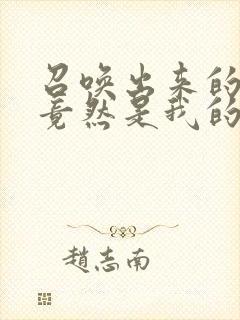 召唤出来的
竟然是我的
趙志南